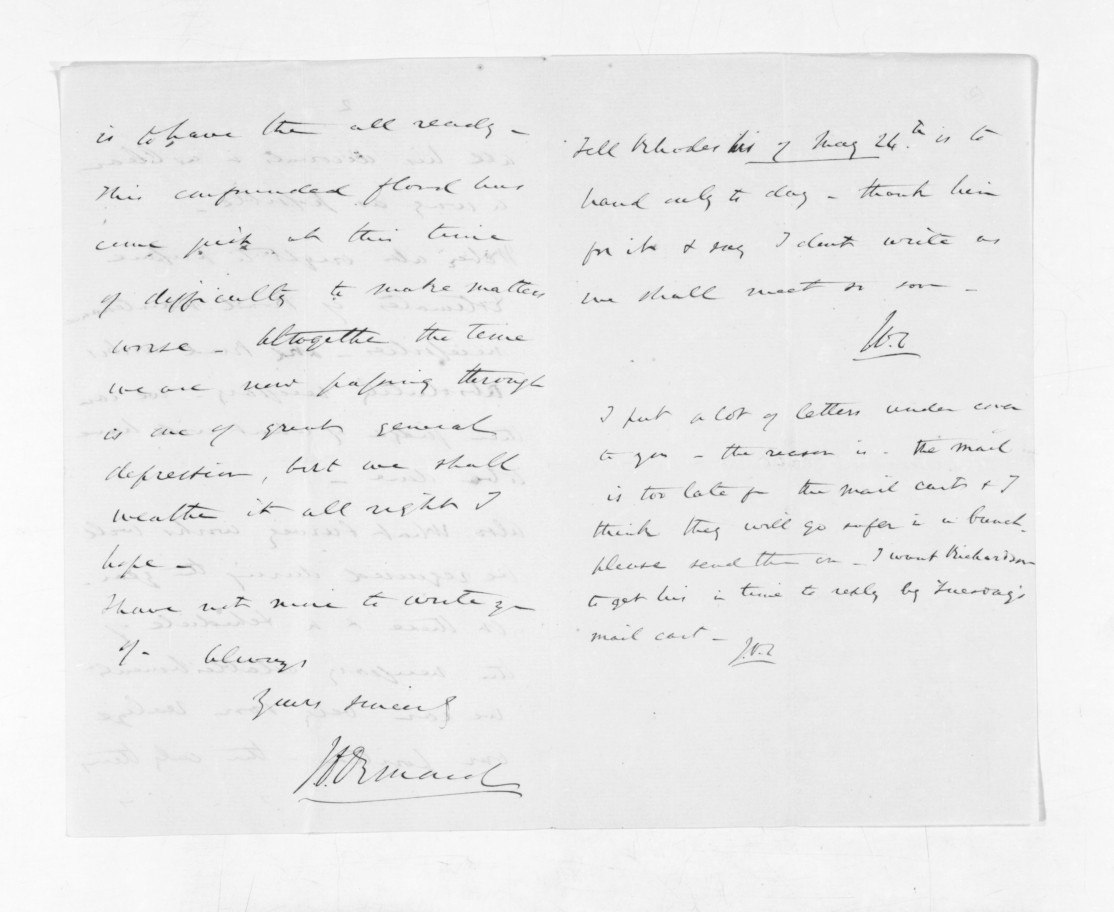 2
is to have them all ready -
This confounded flood has
come just at this time
of difficulty to make matters
worse - Altogether the time
we are now passing through
is one of great general
depression, but we shall
weather it all right I
hope -
I have not more to write you
of - Always
Yours sincerely
J.D.Ormond
Tell Rhodes his of May 24th is to
hand only to day - thank him
for it & say I dont write as
we shall meet so soon -
J.D.O
I put a lot of letters under cover
to you - the reason is - the mail
is too late for the mail carts & I
think they will go safer in a bunch -
please send them on - I want Richardson
to get his in time to reply by Tuesday's
mail cart -
J.D.O